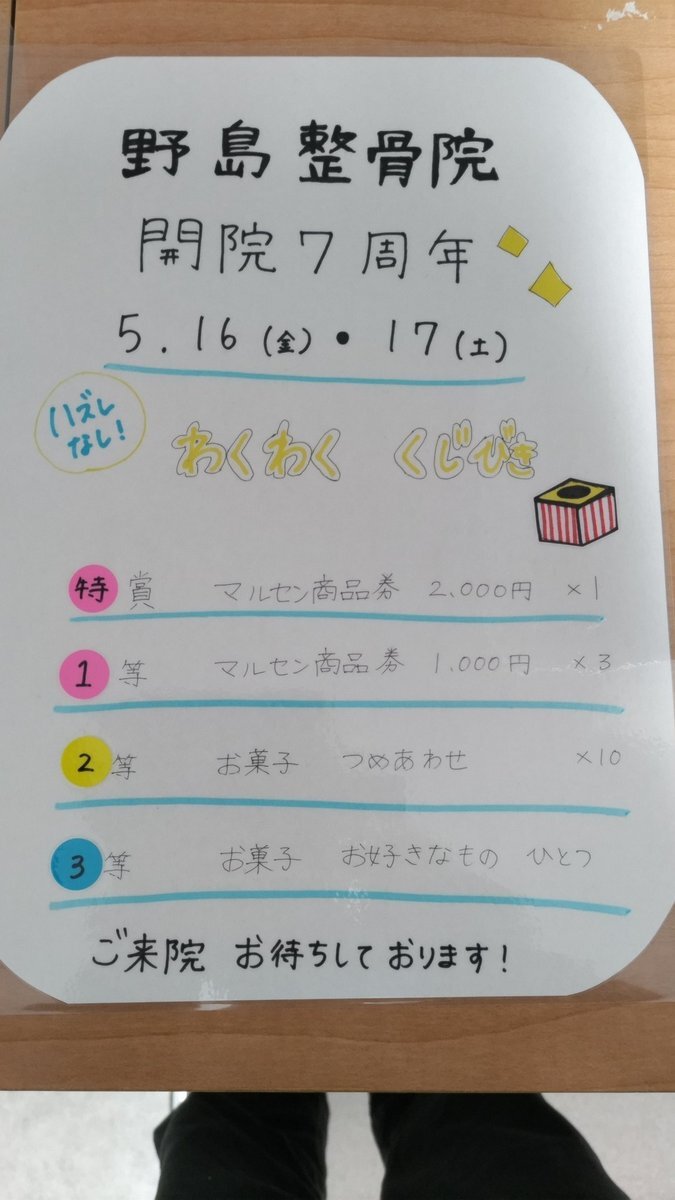 野島整骨院
開院7周年
5.16(金)・17(土)
ハズレ
なし!
わくわく くじびき
特賞 マルセン商品券 2.000円 ×1
1等 マルセン商品券 1.000円 ×3
2等 お菓子 つめあわせ ×10
3等 お菓子 お好きなもの ひとつ
ご来院 お待ちしております!